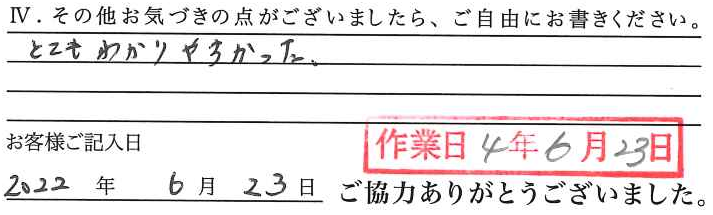 Ⅳ．その他お気づきの点がございましたら、ご自由にお書きください。
とてもわかりやすかった。
お客様ご記入日
作業日4年6月23日
2022年 6月23日 ご協力ありがとうございました。